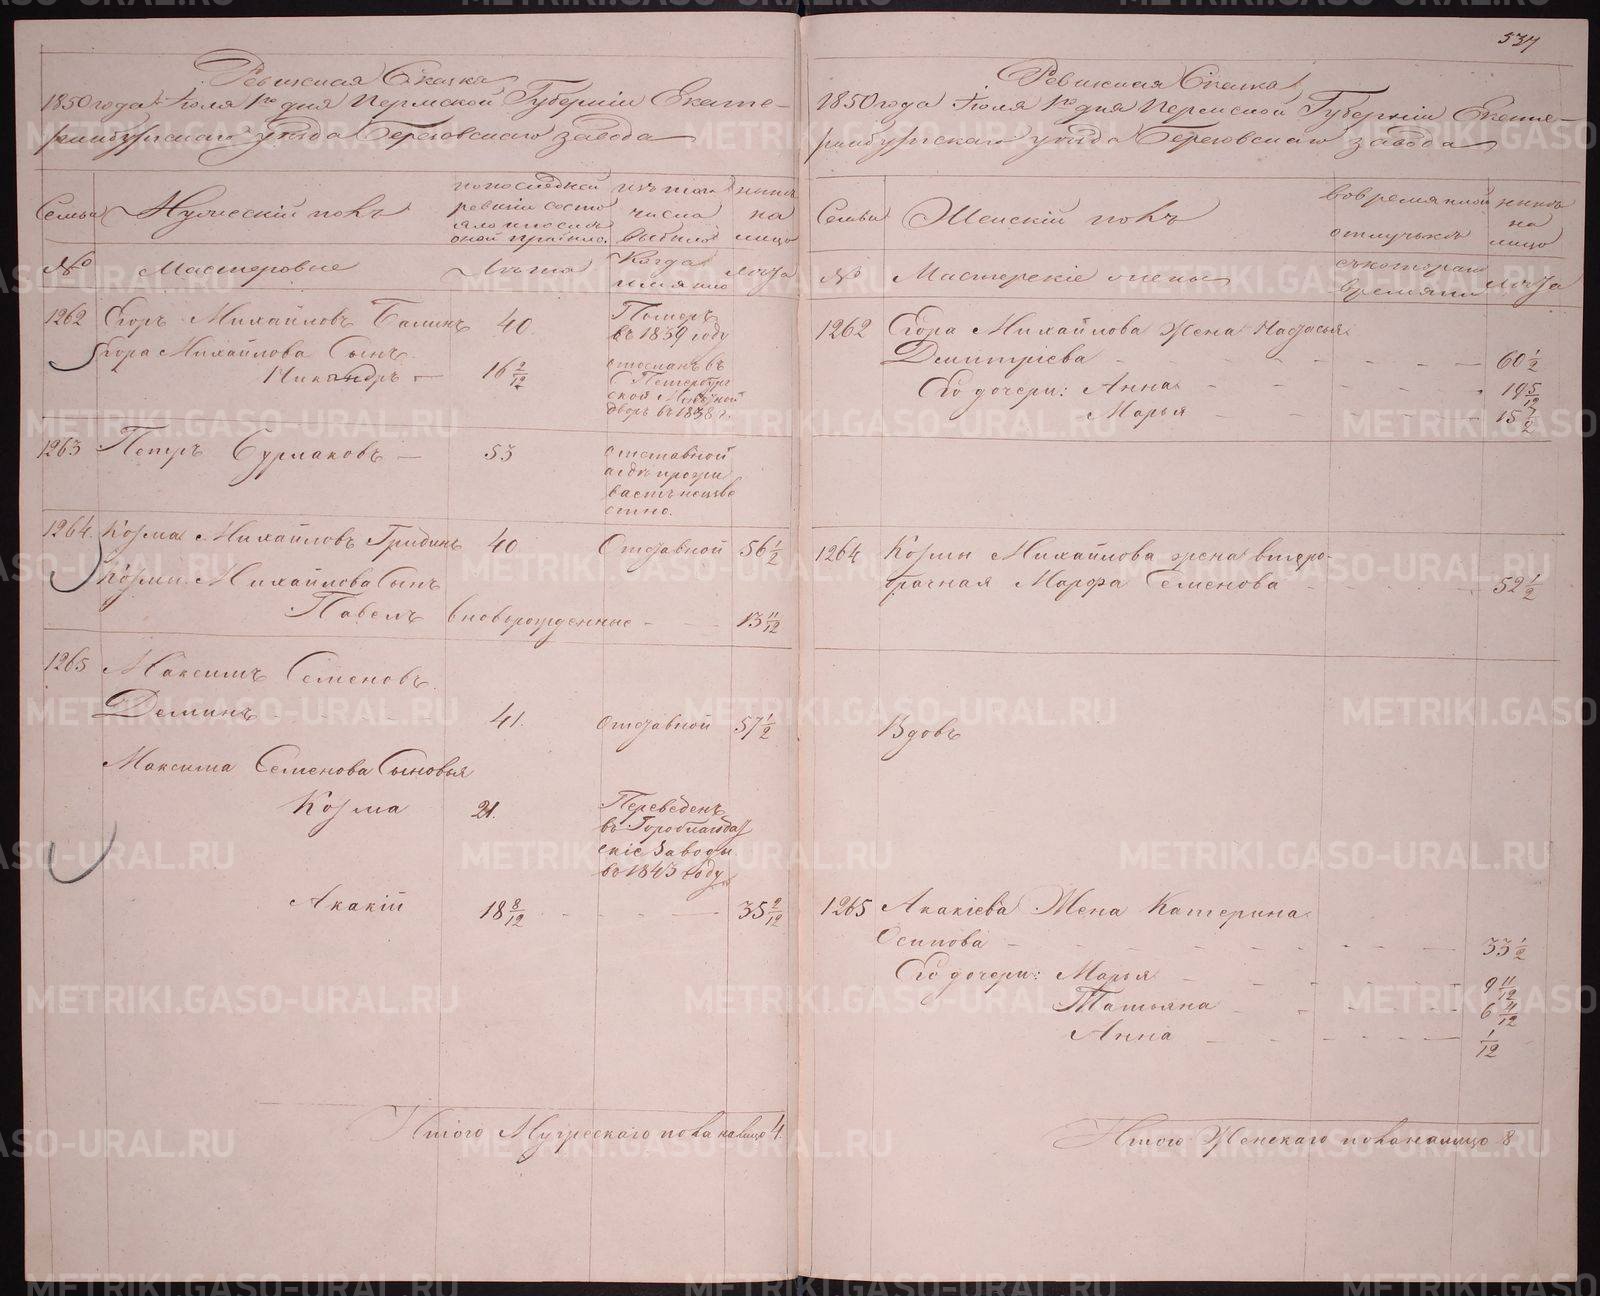 Ревижская Сказка
1850 года Июля 1го дня Пермской Губернiи Екате-
ринбургскаго уѣзда Березовскаго завода
Семьи
Мужескiй полъ
по последней
ревизiи состо
яло и после
оной прибыло.
изъ того
числа
выбыло
нынѣ
на
лицо
№
Мастеровые
Лѣта
Когда
имянно
Лѣта
1262
Егоръ Михайловъ Балинъ
40.
Померъ
въ 1839 году
Егора Михайлова Сынъ
Никандръ —
16 2/12
отосланъ въ
С Петербург
ской Монетной
дворъ въ 1838 г.
1263
Петръ Бурмаковъ —
53
отставной
а гдѣ прожи
ваетъ неизве
стно.
1264.
Козма Михайловъ Гридинъ
40
Отставной
56 1/2
Козмы Михайлова Сынъ
Павелъ
вновьрожденные
13 11/12
1265
Максимъ Семеновъ
Деминъ
41.
Отставной
57 1/2
Максима Семенова Сыновья
Козма
21.
Переведенъ
въ Гороблагодат
скiе Заводы
въ 1843 году
Акакiй
18 8/12
35 2/12
Итого Мужескаго пола на лицо 4.
537
Ревижская Сказка
1850 года Июля 1го дня Пермской Губернiи Екате-
ринбургскаго уѣзда Березовскаго завода
Семьи
Женскiй полъ
во временной
отлучькѣ
нынѣ
на
лицо
№
Мастерскiе жены
съ котораго
времяни
Лѣта
1262
Егора Михайлова Жена Настасья
Демитрiева
60 1/2
Его дочери: Анна
19 5/12
Марья
15 1/2
1264
Козмы Михайлова жена второ-
брачная Марфа Семенова
52 1/2
Вдовъ
1265
Акакiева Жена Катерина
Осипова
33 1/2
Его дочери: Марья
9 11/12
Татьяна
6 11/12
Анна
1/12
Итого Женскаго пола на лицо 8
METRIKI.GASO-URAL.RU